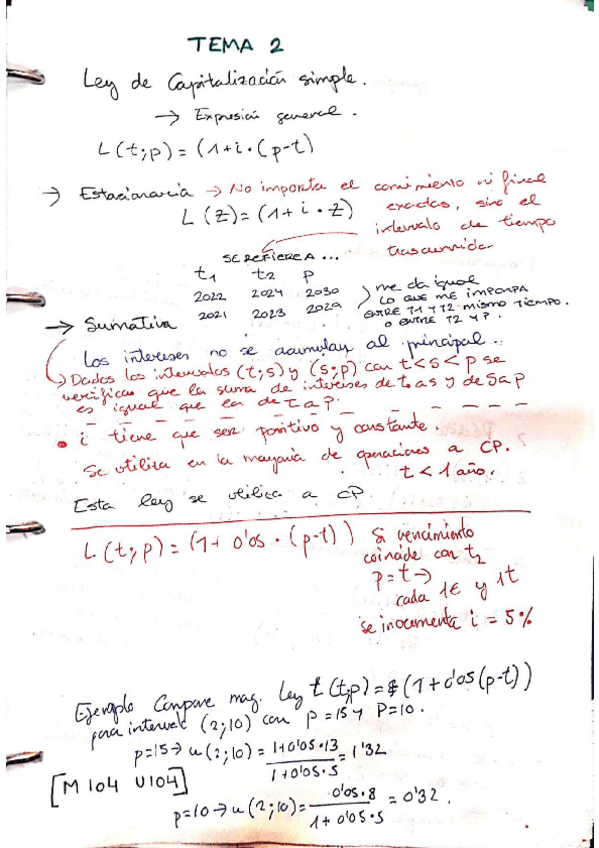 TEMA 2
Ley de Capitalización simple.
→ Expresión general.
L(t;p) = (1+i·(p-t)
→ Estacionaria → No importa el comimiento ni final
L(z) = (1+i·z) exactos, sino el
intervalo de tiempo
transcurrido
SE REFIERE A...
t1 t2 p
2022 2024 2030
2021 2023 2029
me da igual
LO QUE ME IMPORTA
ENTRE T1 Y T2 MISMO TIEMPO.
O ENTRE T2 Y P.
→ Sumativa
Los intereses no se acumulan al principal...
→ Dados los intervalos (t;s) y (s;p) con t<s<p se
verifica que la suma de intereses de t a s y de s a p
es igual que la de t a p.
• i tiene que ser positivo y constante.
Se utiliza en la mayoría de operaciones a CP.
t < 1 año.
Esta ley se utiliza a CP
L(t;p) = (1+0'05·(p-t)) Si vencimiento
coincide con t2
p=t →
cada 1€ y 1t
se incrementa i = 5%
Ejemplo Compare mag. Ley L(t;p) = (1+0'05(p-t))
para intervalo (2;10) con p=15 y P=10.
p=15 → u(2;10) = 1+0'05·13 / 1+0'05·5 = 1'32
[M104 U104]
p=10 → u(2;10) = 0'05·8 / 1+0'05·5 = 0'32.